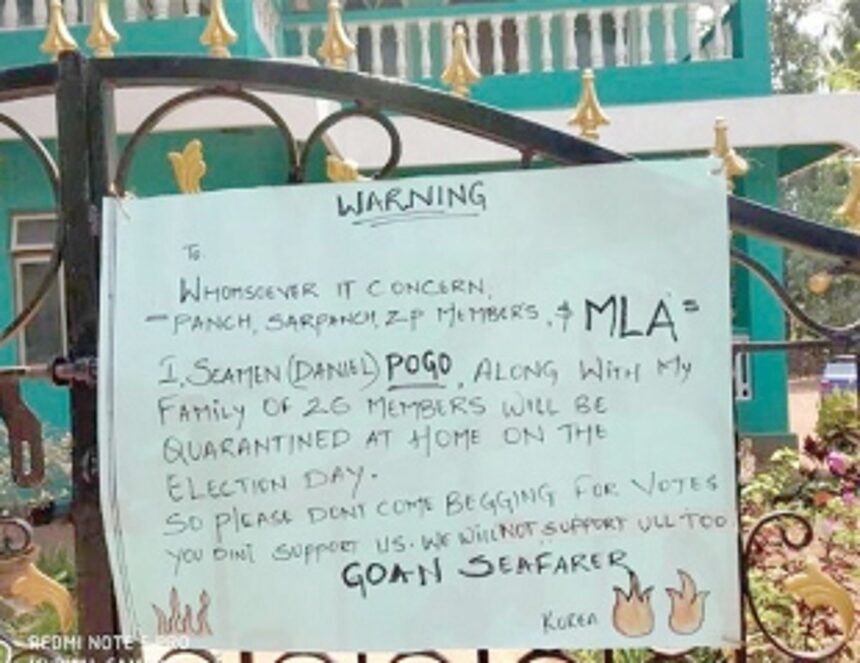 WARNING
To.
WHOMSOEVER IT CONCERN,
- PANCH, SARPANCH, Z.P MEMBERS, & MLA =
I, SEAMEN (DANIEL) POGO, ALONG WITH MY
FAMILY OF 26 MEMBERS WILL BE
QUARANTINED AT HOME ON THE
ELECTION DAY.
SO PLEASE DONT COME BEGGING FOR VOTES
YOU DINT SUPPORT US. WE WILL NOT SUPPORT ULL TOO
GOAN SEAFARER
KOREA
REDMI NOTE 5 PRO